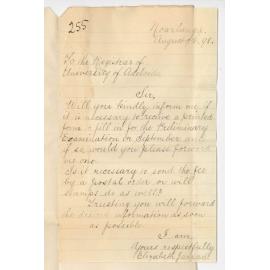 255
Noarlunga
August 98.
To the Registrar of
University of Adelaide
Sir,
Will you kindly inform me if
it is necessary to receive a printed
form to fill in for the Preliminary
Examination in September and
if so would you please forward
me one.
Is it necessary to send the fee
by a postal order or will
stamps do as well?
Trusting you will forward
the desired information as soon
as possible.
I am
Yours respectfully
Elizabeth